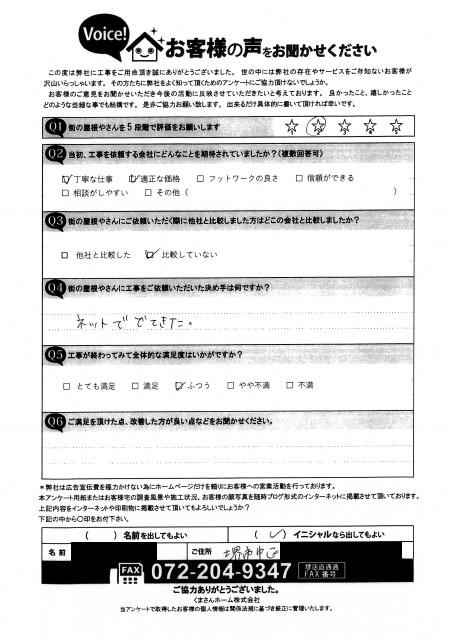 Voice!
お客様の声をお聞かせください
この度は弊社に工事をご用命頂き誠にありがとうございました。 世の中には弊社の存在やサービスをご存知ないお客様が
沢山いらっしゃいます。 その方たちに弊社をよく知って頂くためのアンケートにご協力頂けないでしょうか。
お客様のご意見をお聞かせいただき今後の活動に反映させていただきたいと考えております。 良かったこと、嬉しかったこと
どのような些細な事でも結構です。 是非ご協力お願い致します。 出来るだけ具体的に書いて頂ければ幸いです。
Q1 街の屋根やさんを5段階で評価をお願いします
1 2 3 4 5
Q2 当初、工事を依頼する会社にどんなことを期待されていましたか？(複数回答可)
丁寧な仕事 適正な価格 フットワークの良さ 信頼ができる
相談がしやすい その他（ ）
Q3 街の屋根やさんにご依頼いただく際に他社と比較しました方はどこの会社と比較しましたか？
他社と比較した 比較していない
Q4 街の屋根やさんに工事をご依頼いただいた決め手は何ですか？
ネットででてきた。
Q5 工事が終わってみて全体的な満足度はいかがですか？
とても満足 満足 ふつう やや不満 不満
Q6 ご満足を頂けた点、改善した方が良い点などをお聞かせください。
＊弊社は広告宣伝費を極力かけない為にホームページだけを頼りにお客様への営業活動を行っております。
本アンケート用紙またはお客様宅の調査風景や施工状況、お客様の顔写真を随時ブログ形式のインターネットに掲載させて頂いております。
上記内容をインターネットや印刷物に掲載させて頂いてもよろしいでしょうか？
下記の中から〇印をお付下さい。
（ ）名前を出してもよい （ ）イニシャルなら出してもよい
名前 ご住所 堺市中区
FAX 072-204-9347 堺店直通
FAX番号
ご協力ありがとうございました。
くまさんホーム株式会社
当アンケートで取得したお客様の個人情報は関係法規に基づき厳正に管理いたします。